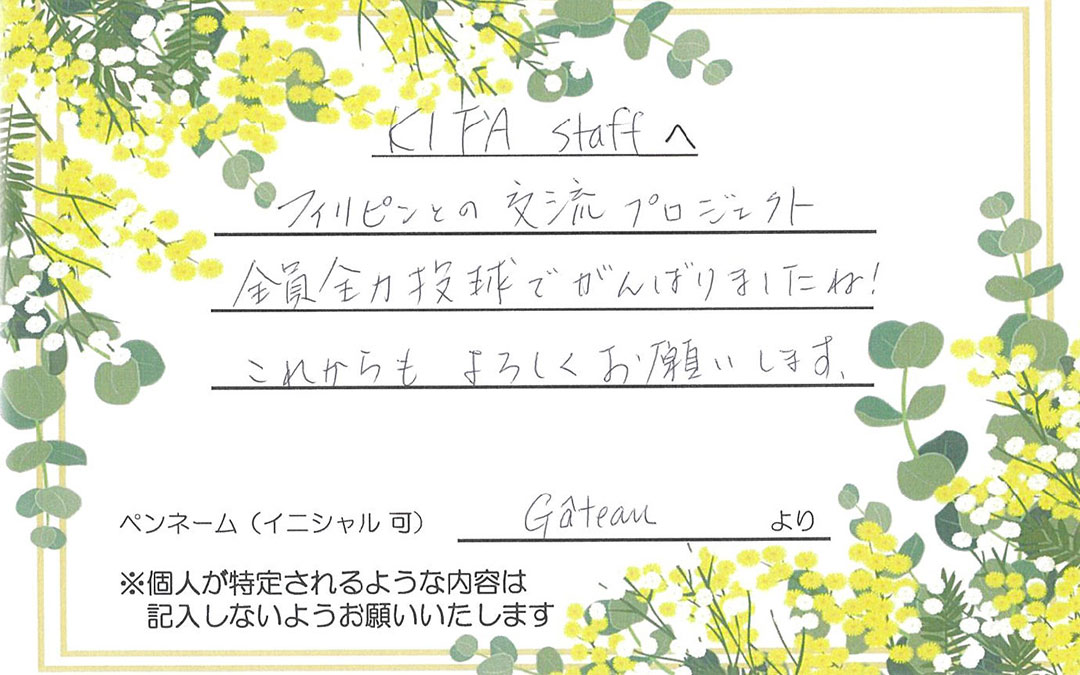 KIFA staff へ
フィリピンとの 交流 プロジェクト
全員全力投球でがんばりましたね!
これからも よろしくお願いします。
ペンネーム(イニシャル 可) Gâteau より
※個人が特定されるような内容は
記入しないようお願いいたします